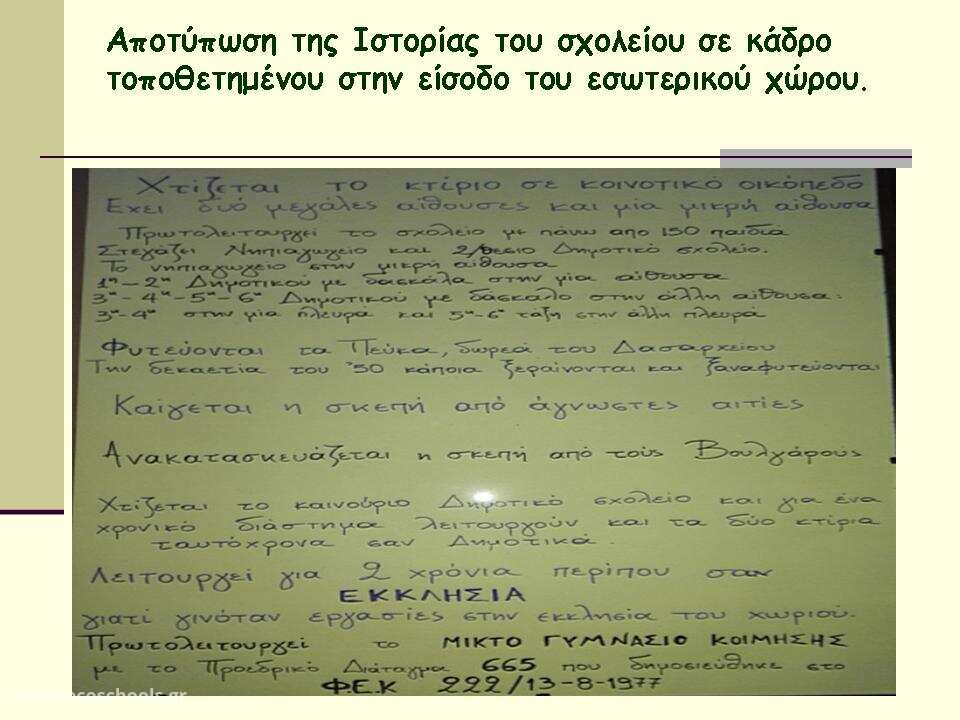 Αποτύπωση της Ιστορίας του σχολείου σε κάδρο
τοποθετημένου στην είσοδο του εσωτερικού χώρου.
Χτίζεται το κτίριο σε κοινοτικό οικόπεδο
Έχει δυό μεγάλες αίθουσες και μία μικρή αίθουσα
Πρωτολειτουργεί το σχολείο με πάνω απο 150 παιδιά
Στεγάζει Νηπιαγωγείο και 2/θεσιο Δημοτικό σχολείο.
Το νηπιαγωγείο στην μικρή αίθουσα
1η-2α Δημοτικού με δασκάλα στην μία αίθουσα
3η-4η-5η-6η Δημοτικού με δάσκαλο στην άλλη αίθουσα:
3η-4η στην μία πλευρά και 5η-6η τάξη στην άλλη πλευρά
Φυτεύονται τα Πεύκα, δωρεά του Δασαρχείου
Την δεκαετία του '50 κάποια ξεραίνονται και ξαναφυτεύονται
Καίγεται η σκεπή από άγνωστες αιτίες
Ανακατασκευάζεται η σκεπή από τούς Βουλγάρους
Χτίζεται το καινούριο Δημοτικό σχολείο και για ένα
χρονικό διάστημα λειτουργούν και τα δύο κτίρια
ταυτόχρονα σαν Δημοτικά.
Λειτουργεί για 2 χρόνια περίπου σαν
ΕΚΚΛΗΣΙΑ
γιατί γινόταν εργασίες στην εκκλησία του χωριού.
Πρωτολειτουργεί το ΜΙΚΤΟ ΓΥΜΝΑΣΙΟ ΚΟΙΜΗΣΗΣ
με το Προεδρικό Διάταγμα 665 που δημοσιεύθηκε στο
Φ.Ε.Κ 222/13-8-1977